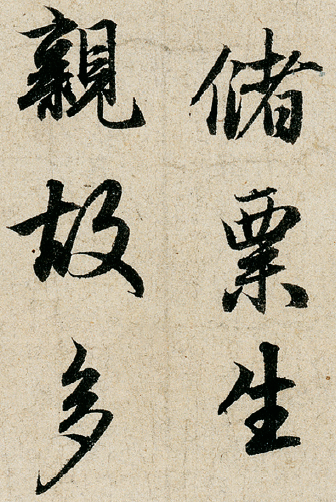 儲粟生
親故多